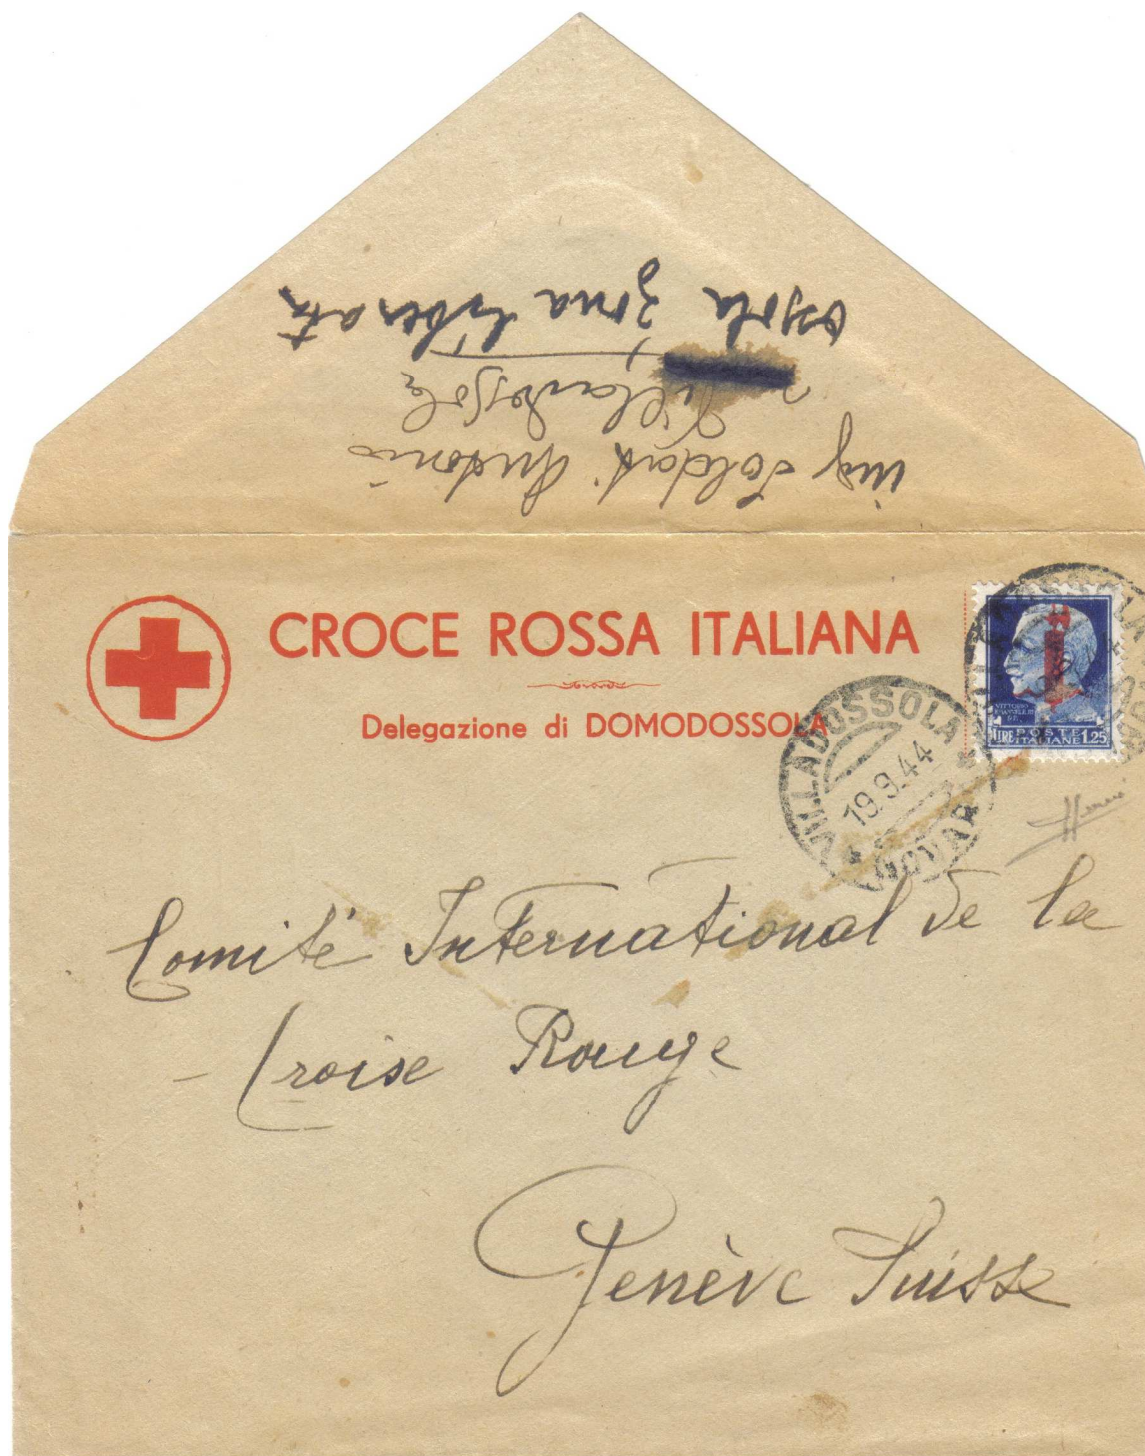 ing Soldati Antonio
Villadossola
Ossola zona liberata
CROCE ROSSA ITALIANA
Delegazione di DOMODOSSOLA
VILLADOSSOLA
19.9.44
NOVARA
VITTORIO
EMANUELE III
1 POSTE
LIRE ITALIANE 1,25
Comité International de la
- Croise Rouge
Genève Suisse